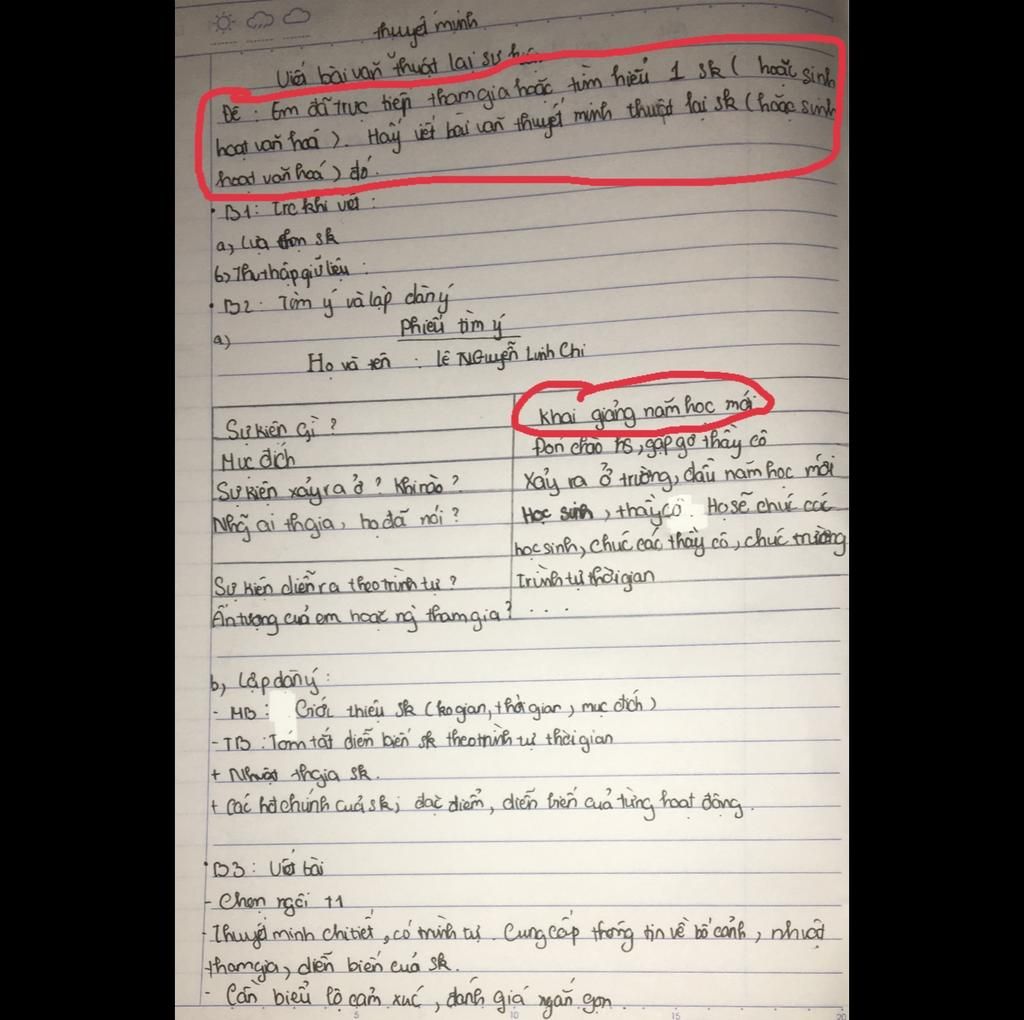 thuyết minh
Viết bài văn thuật lại sự
Đề : Em đã trực tiếp tham gia hoặc tìm hiểu 1 sk ( hoặc sinh
hoạt văn hoá ). Hãy viết bài văn thuyết minh thuật lại sk (hoặc sinh
hoạt văn hoá ) đó.
• B1: Trc khi viết :
a, Lựa chọn sk
b, Thu thập giữ liệu :
• B2: Tìm ý và lập dàn ý
a) Phiếu tìm ý
Họ và tên : Lê Nguyễn Linh Chi
Sự kiện gì ? Khai giảng năm học mới
Mục đích Đón chào hs, gặp gỡ thầy cô
Sự kiện xảy ra ở ? Khi nào ? Xảy ra ở trường, đầu năm học mới
Nhg ai thgia, họ đã nói ? Học sinh, thầy cô. Họ sẽ chúc các
học sinh, chúc các thầy cô, chúc trường
Sự kiện diễn ra theo trình tự ? Trình tự thời gian
Ấn tượng của em hoặc ng` tham gia ? . . . .
b, Lập dàn ý :
- MB : Giới thiệu sk (ko gian, thời gian, mục đích)
- TB : Tóm tắt diễn biến sk theo trình tự thời gian
+ Nhvật thgia sk.
+ Các hđ chính của sk; đặc điểm, diễn biến của từng hoạt động.
• B3 : Viết bài
- Chọn ngôi t1
- Thuyết minh chi tiết, có trình tự. Cung cấp thông tin về bối cảnh, nhvật
tham gia, diễn biến của sk.
- Cần biểu lộ cảm xúc, đánh giá ngắn gọn.
5 10 15 20